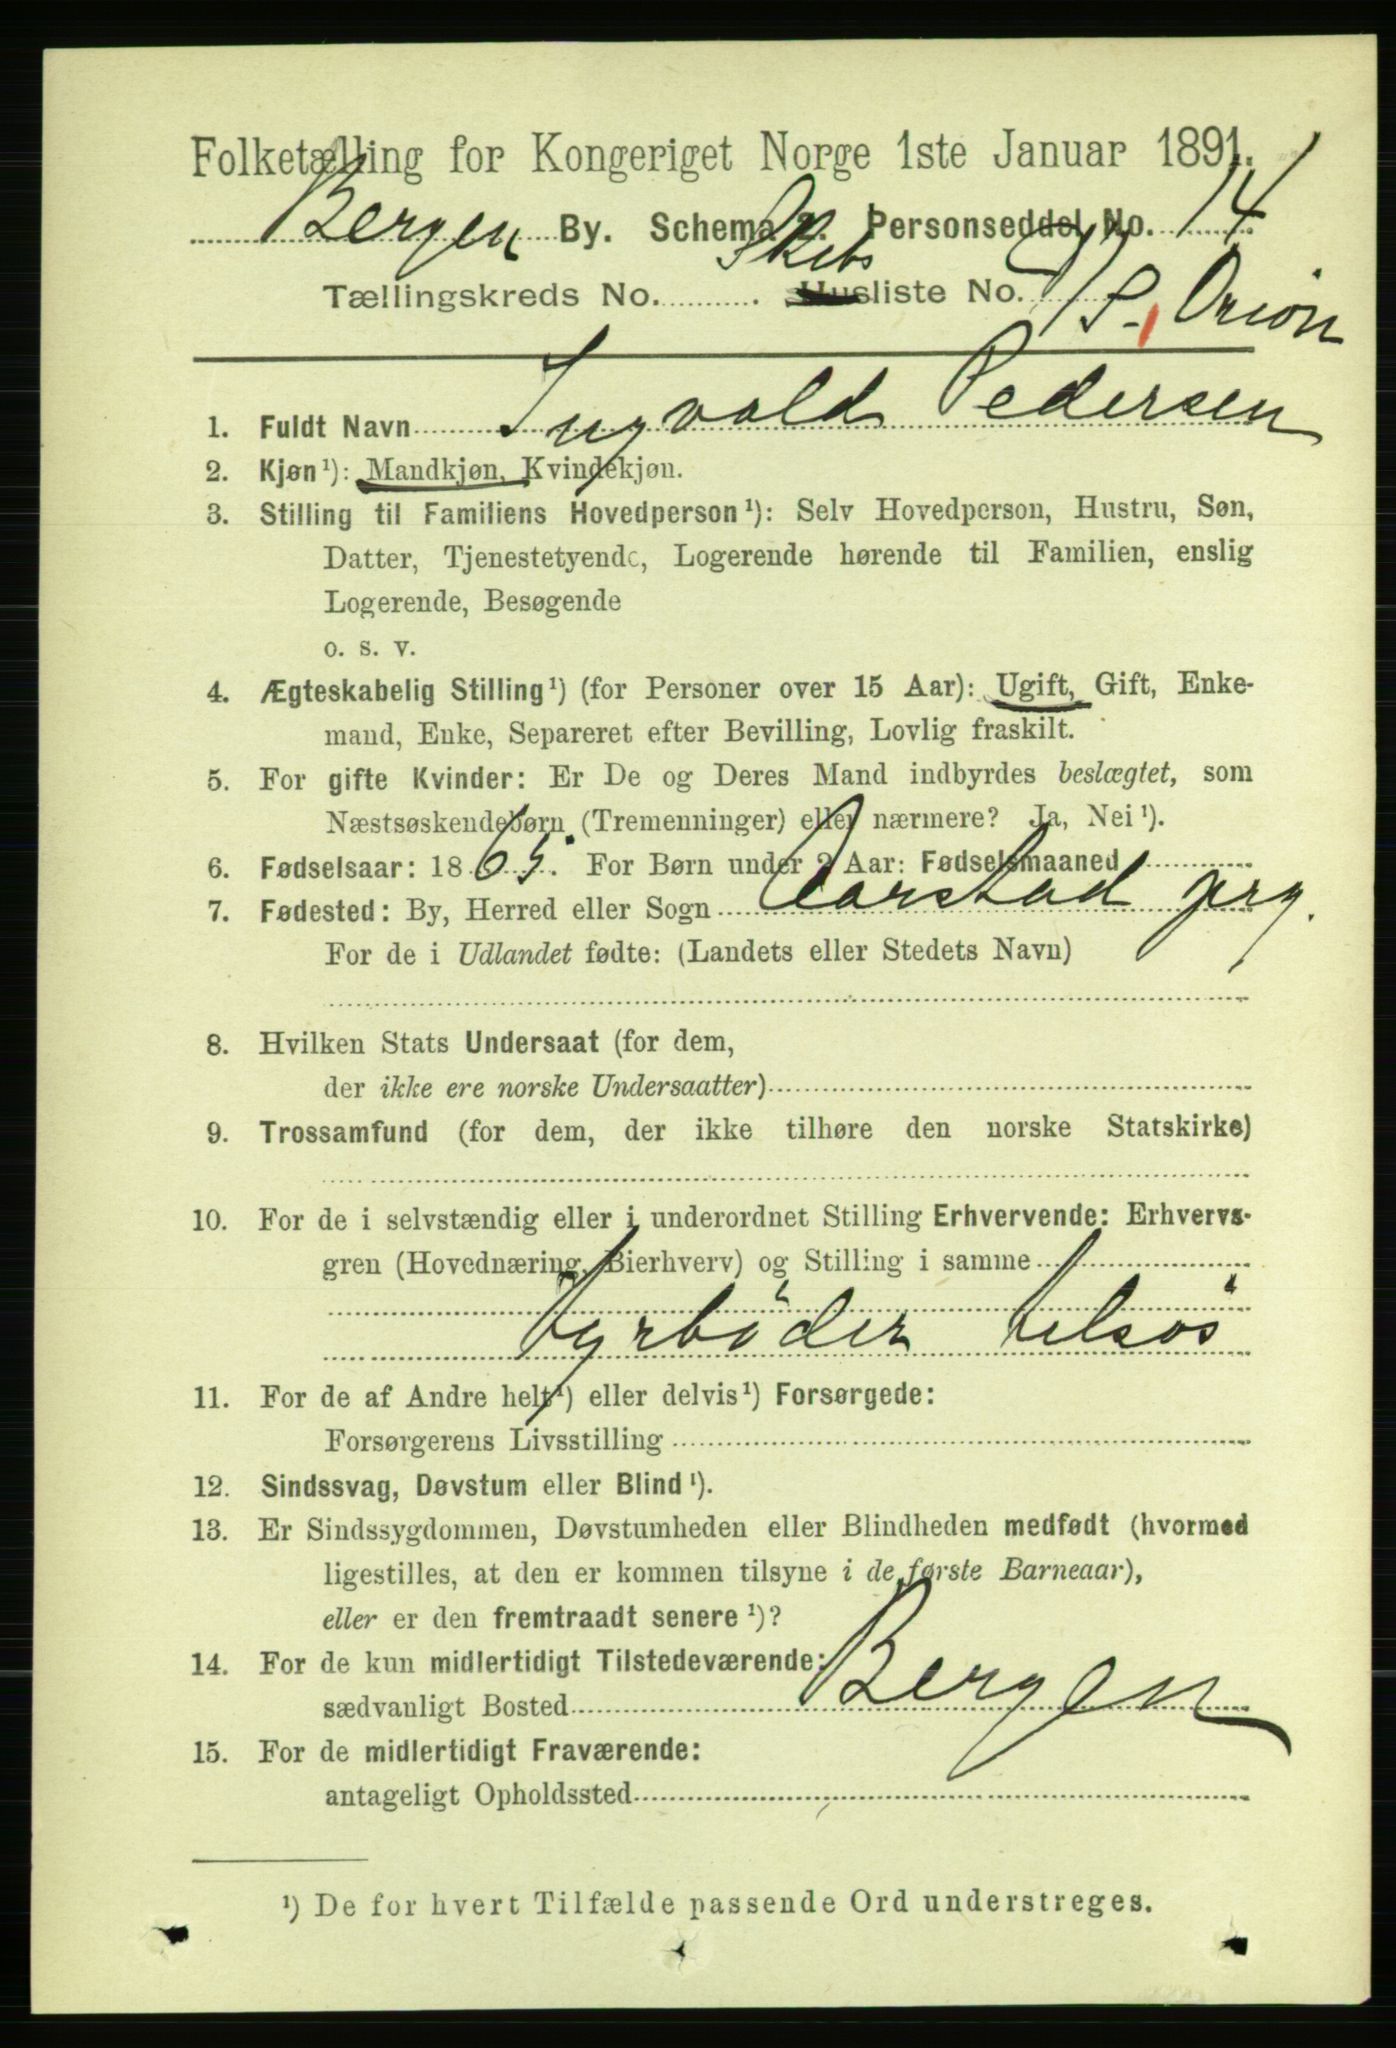 Folketælling for Kongeriget Norge 1ste Januar 1891.
Bergen By. Schema 2. Personseddel No. 14
Tællingskreds No. . Skibs Husliste No. D/S. Orion
1. Fuldt Navn Ingvald Pedersen
2. Kjøn ¹): Mandkjøn, Kvindekjøn.
3. Stilling til Familiens Hovedperson ¹): Selv Hovedperson, Hustru, Søn,
Datter, Tjenestetyende, Logerende hørende til Familien, enslig
Logerende, Besøgende
o. s. v.
4. Ægteskabelig Stilling ¹) (for Personer over 15 Aar): Ugift, Gift, Enke-
mand, Enke, Separeret efter Bevilling, Lovlig fraskilt.
5. For gifte Kvinder: Er De og Deres Mand indbyrdes beslægtet, som
Næstsøskendebørn (Tremenninger) eller nærmere? Ja, Nei ¹).
6. Fødselsaar: 18 65. For Børn under 2 Aar: Fødselsmaaned
7. Fødested: By, Herred eller Sogn Aarstad prg.
For de i Udlandet fødte: (Landets eller Stedets Navn)
8. Hvilken Stats Undersaat (for dem,
der ikke ere norske Undersaatter)
9. Trossamfund (for dem, der ikke tilhøre den norske Statskirke)
10. For de i selvstændig eller i underordnet Stilling Erhvervende: Erhvervs-
gren (Hovednæring, Bierhverv) og Stilling i samme
Fyrbøder tilsøs
11. For de af Andre helt ¹) eller delvis ¹) Forsørgede:
Forsørgerens Livsstilling
12. Sindssvag, Døvstum eller Blind ¹).
13. Er Sindssygdommen, Døvstumheden eller Blindheden medfødt (hvormed
ligestilles, at den er kommen tilsyne i de første Barneaar),
eller er den fremtraadt senere ¹)?
14. For de kun midlertidigt Tilstedeværende:
sædvanligt Bosted Bergen
15. For de midlertidigt Fraværende:
antageligt Opholdssted
¹) De for hvert Tilfælde passende Ord understreges.